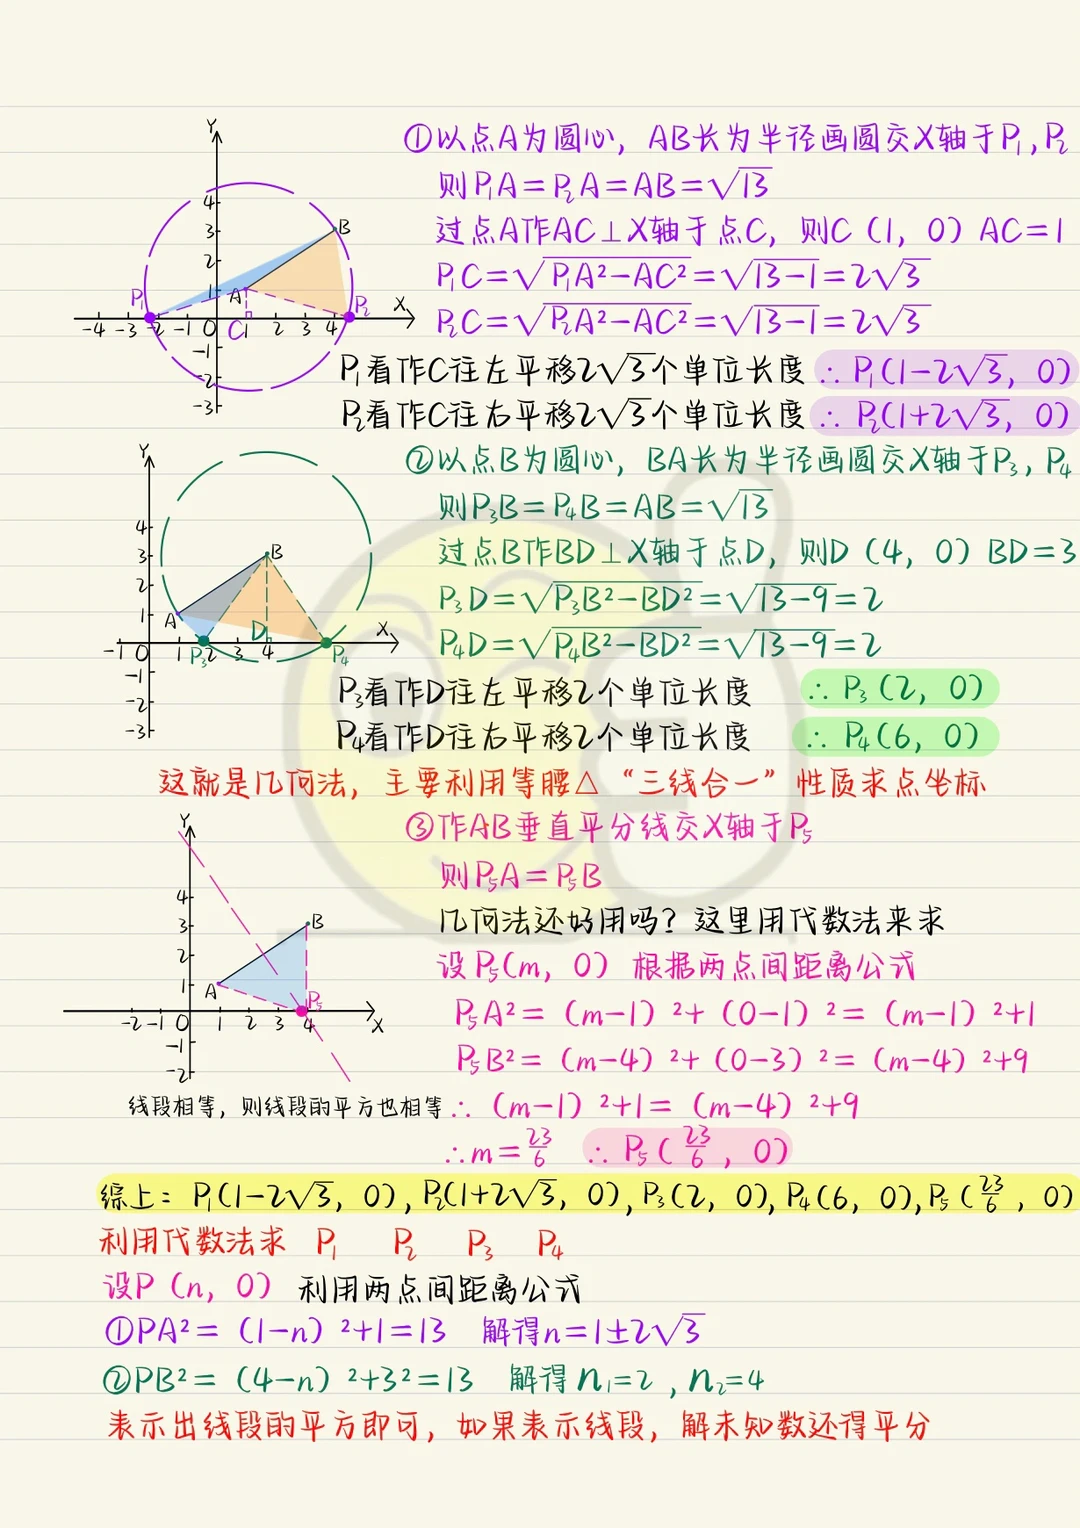 ①以点A为圆心，AB长为半径画圆交X轴于P₁,P₂
则P₁A=P₂A=AB=√13
过点A作AC⊥X轴于点C，则C（1，0）AC=1
P₁C=√P₁A²-AC²=√13-1=2√3
P₂C=√P₂A²-AC²=√13-1=2√3
P₁看作C往左平移2√3个单位长度 ∴P₁(1-2√3，0)
P₂看作C往右平移2√3个单位长度 ∴P₂(1+2√3，0)
Y
4
3
2
1
B
A
P₁
P₂
C
X
-4 -3 -2 -1 0 1 2 3 4
-1
-2
-3
②以点B为圆心，BA长为半径画圆交X轴于P₃，P₄
则P₃B=P₄B=AB=√13
过点B作BD⊥X轴于点D，则D（4，0）BD=3
P₃D=√P₃B²-BD²=√13-9=2
P₄D=√P₄B²-BD²=√13-9=2
P₃看作D往左平移2个单位长度 ∴P₃(2，0)
P₄看作D往右平移2个单位长度 ∴P₄(6，0)
Y
4
3
2
1
B
A
D
X
-1 0 1 P₃ 2 3 4 P₄
-1
-2
-3
这就是几何法，主要利用等腰△“三线合一”性质求点坐标
③作AB垂直平分线交X轴于P₅
则P₅A=P₅B
几何法还好用吗？这里用代数法来求
设P₅(m，0）根据两点间距离公式
P₅A²=（m-1）²+（0-1）²=（m-1）²+1
P₅B²=（m-4）²+（0-3）²=（m-4）²+9
Y
4
3
2
1
B
A
P₅
-2 -1 0 1 2 3 4 X
-1
-2
线段相等，则线段的平方也相等∴（m-1）²+1=（m-4）²+9
∴m=23/6 ∴P₅(23/6，0)
综上：P₁(1-2√3，0),P₂(1+2√3，0),P₃(2，0),P₄(6，0),P₅(23/6，0)
利用代数法求 P₁ P₂ P₃ P₄
设P（n，0）利用两点间距离公式
①PA²=（1-n）²+1=13 解得n=1±2√3
②PB²=（4-n）²+3²=13 解得n₁=2,n₂=4
表示出线段的平方即可，如果表示线段，解未知数还得平分